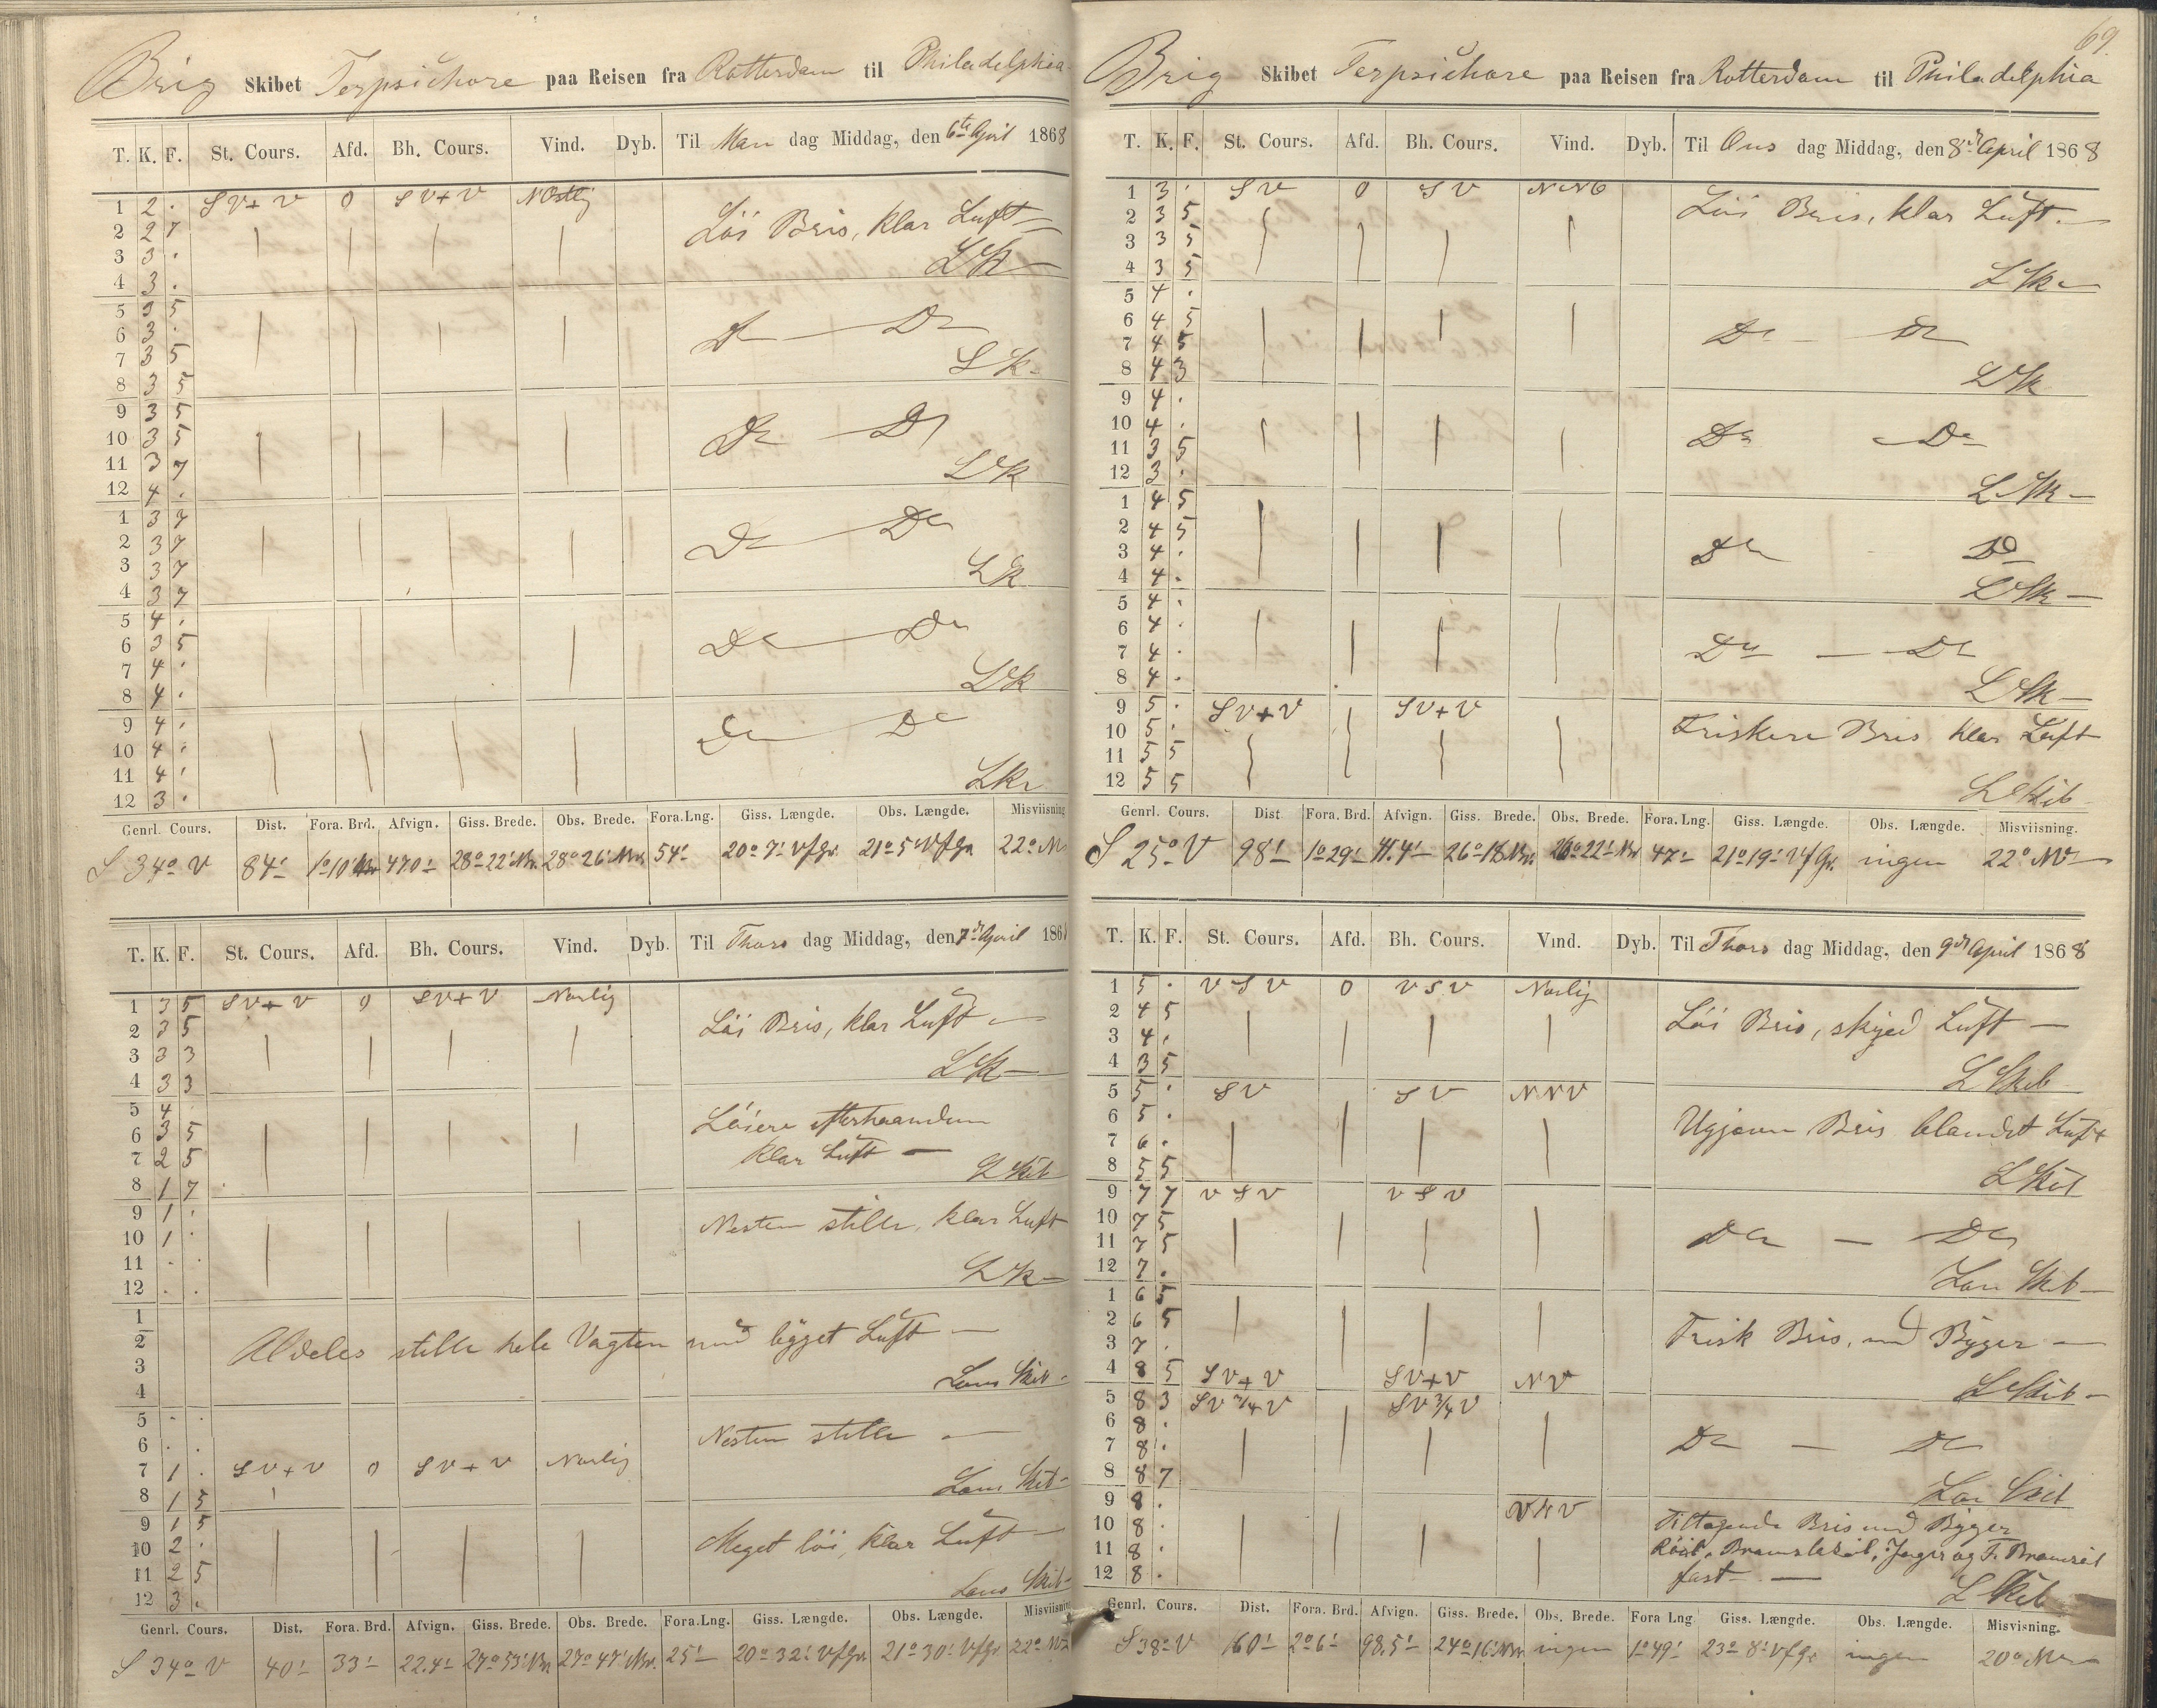 Brig Skibet Terpsichore paa Reisen fra Rotterdam til Philadelphia
T. K. F. St. Cours. Afd. Bh. Cours. Vind. Dyb. Til Man dag Middag, den 6te April 1868
1 2 . SV+V 0 SV+V NOstlig Löi Bris, klar Luft —
2 2 7
3 3 . LSk —
4 3 .
5 3 5
6 3 . Do — Do
7 3 5 LSk
8 3 5
9 3 5
10 3 5 Do — Do
11 3 7 LSk
12 4 .
1 3 7
2 3 7 Do — Do
3 3 7 LSk
4 3 7
5 4 .
6 3 5 Do — Do
7 4 . LSk
8 4 .
9 4 . Do — Do
10 4 .
11 4 . LSk
12 3 .
Genrl. Cours. Dist. Fora. Brd. Afvign. Giss. Brede. Obs. Brede. Fora. Lng. Giss. Længde. Obs. Længde. Misviisning
S 34° V 84' 1° 10' 470' 28° 22' Nr. 28° 26' Nr. 54' 20° 7' Vf Gr. 21° 5' Vf Gr. 22°
T. K. F. St. Cours. Afd. Bh. Cours. Vind. Dyb. Til Thors dag Middag, den 7de April 1868
1 3 5 SV+V 0 SV+V Norlig Löi Bris, klar Luft —
2 3 5
3 3 3 LSk —
4 3 3
5 4 . Löiere efterhaanden
6 3 5 klar Luft —
7 2 5 L Skib
8 1 7
9 1 . Nesten stille, klar Luft
10 1 .
11 . . LSk —
12 . .
1
2 Aldeles stille hele Vagten med bygget Luft —
3 Lars Skib
4
5 . .
6 . . Nesten stille —
7 1 . SV+V 0 SV+V Norlig
8 1 5 Lars Skib
9 1 5
10 2 . Meget löi, klar Luft —
11 2 5 Lars Skib
12 3 .
Genrl. Cours. Dist. Fora. Brd. Afvign. Giss. Brede. Obs. Brede. Fora. Lng. Giss. Længde. Obs. Længde. Misviisning
S 34° V 40' 33' 22.4' 27° 53' Nr. 27° 47' Nr. 25' 20° 32' Vf Gr. 21° 30' Vf Gr. 22°
69.
Brig Skibet Terpsichore paa Reisen fra Rotterdam til Philadelphia
T. K. F. St. Cours. Afd. Bh. Cours. Vind. Dyb. Til Ons dag Middag, den 8de April 1868
1 3 . SV 0 SV NNO Löi Bris, klar Luft —
2 3 5
3 3 5
4 3 5 LSk
5 4 .
6 4 5 Do — Do
7 4 5
8 4 3 LSk
9 4 .
10 4 . Do Do
11 3 5
12 3 . LSk —
1 4 5
2 4 5
3 4 . Do Do
4 4 . LSk —
5 4 .
6 4 .
7 4 . Do — Do
8 4 . LSk —
9 5 . SV+V SV+V Friskere Bris klar Luft
10 5 .
11 5 5
12 5 5 L Skib
Genrl. Cours. Dist Fora. Brd. Afvign. Giss. Brede. Obs. Brede. Fora. Lng. Giss. Længde. Obs. Længde. Misviisning.
S 25° V 98' 1° 29' 41.4' 26° 18' Nr. 26° 22' Nr 47' 21° 19' Vf Gr. ingen 22° NV
T. K. F. St. Cours. Afd. Bh. Cours. Vind. Dyb. Til Thors dag Middag, den 9de April 1868
1 5 . VSV 0 VSV Norlig
2 4 5 Löi Bris, skyed Luft —
3 4 .
4 3 5 L Skib
5 5 . SV SV NNV
6 5 . Ugjævn Bris blandet Luft
7 6 .
8 5 5 L Skib
9 7 7 VSV VSV
10 7 5 Do — Do
11 7 5
12 7 . Lars Skib —
1 6 5
2 6 5 Frisk Bris, med Byger —
3 7 .
4 8 5 SV+V SV+V NV L Skib —
5 8 3 SV 3/4 V SV 3/4 V
6 8 . Do — Do
7 8 .
8 8 7 Lars Skib
9 8 . VNV Tiltagende Bris med Byger
10 8 . Röil, Bramsteseil, Jager og F. Bramseil
11 8 . fast —
12 8 . L Skib
Genrl. Cours. Dist. Fora. Brd. Afvign. Giss. Brede. Obs. Brede. Fora Lng Giss. Længde. Obs. Længde. Misvisning.
S 38° V 160' 2° 6' 98.5' 24° 16' Nr ingen 1° 49' 23° 8' Vf Gr ingen 20° NV